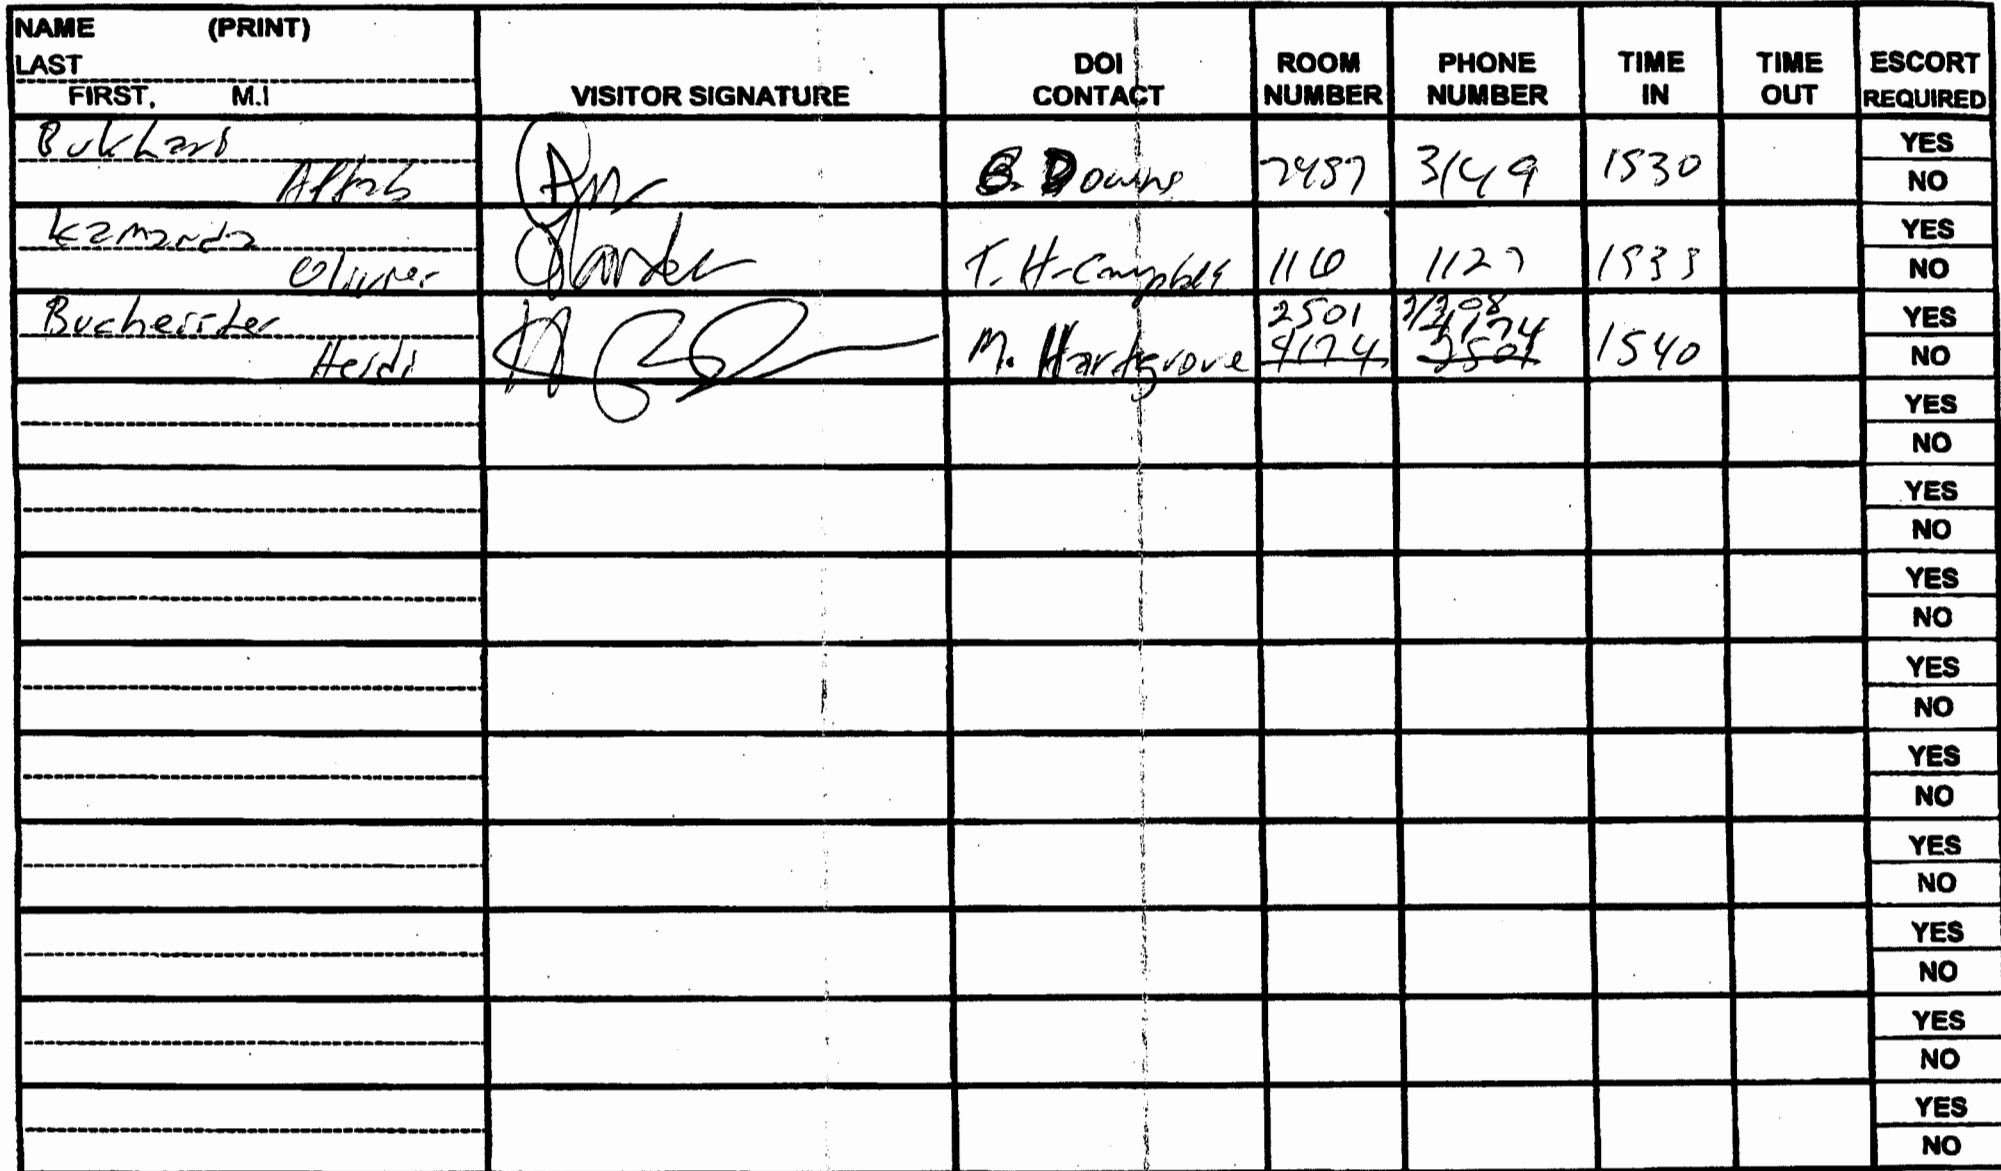 NAME (PRINT)
LAST
FIRST, M.I
VISITOR SIGNATURE
DOI CONTACT
ROOM NUMBER
PHONE NUMBER
TIME IN
TIME OUT
ESCORT REQUIRED
Bukhari
Aftab
B. Downs
3149
1530
YES
NO
Kamanda
Oliver
T. H-Campbell
1127
YES
NO
Bucheister
Heidi
M. Hartgrove
2501
4174
1540
YES
NO
YES
NO
YES
NO
YES
NO
YES
NO
YES
NO
YES
NO
YES
NO
YES
NO
YES
NO